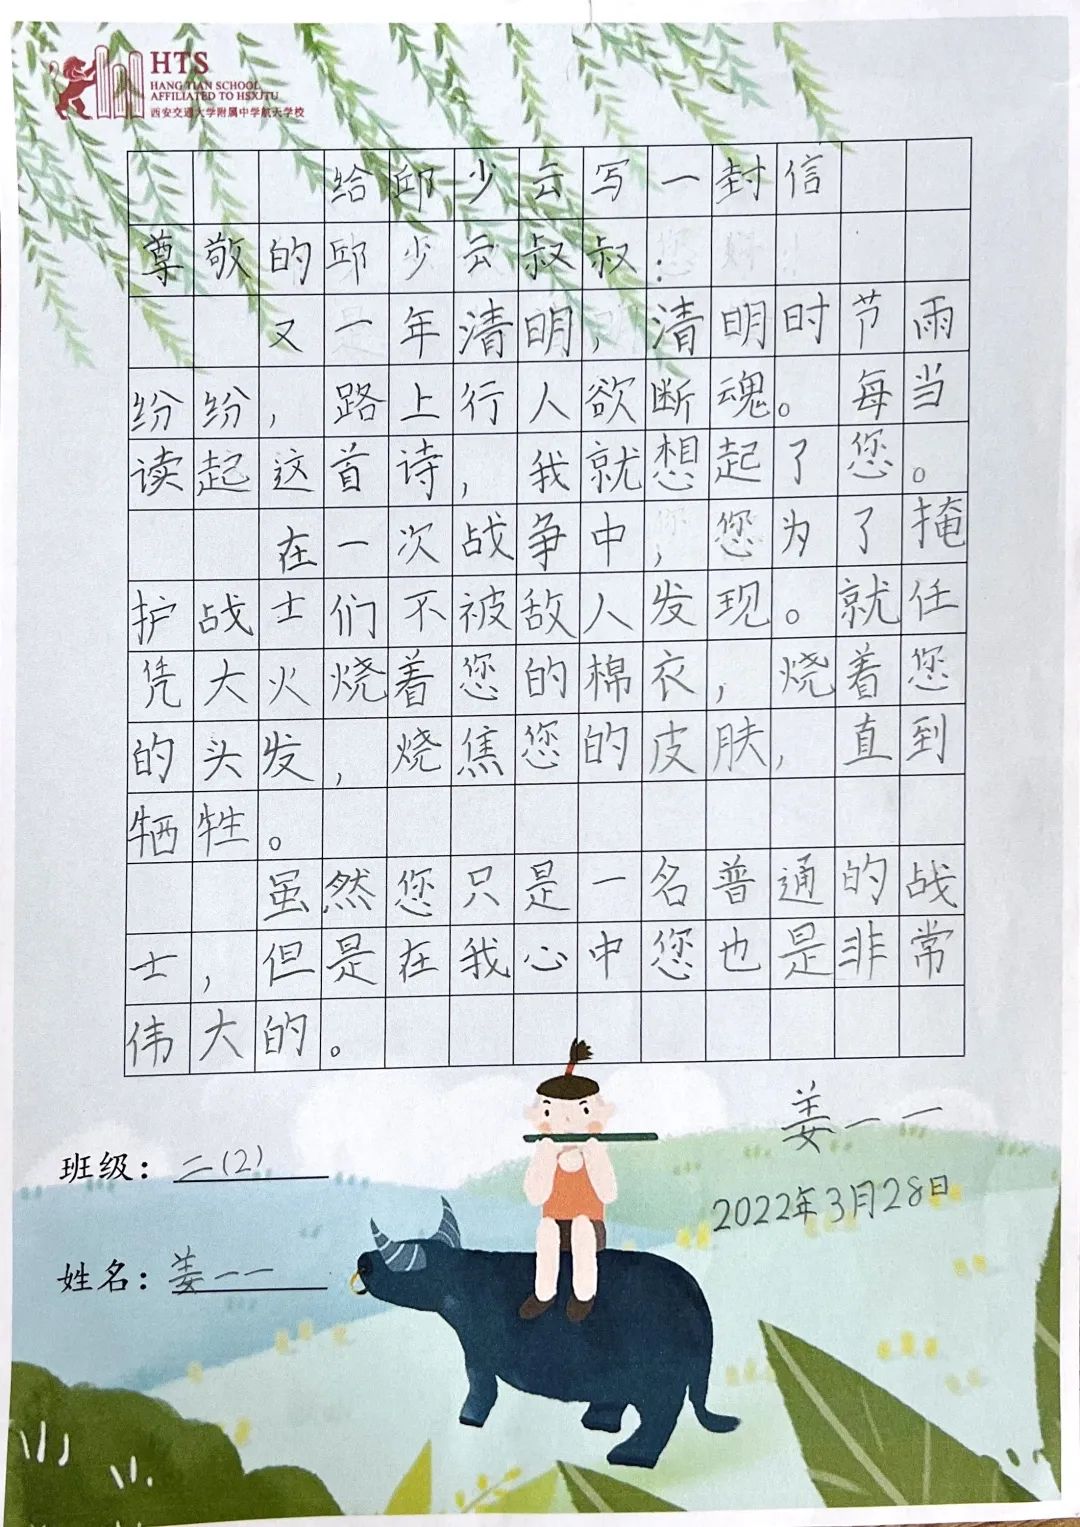 HTS
HANG TIAN SCHOOL
AFFILIATED TO HSXJTU
西安交通大学附属中学航天学校
给邱少云写一封信
尊敬的邱少云叔叔：
又一年清明，清明时节雨
纷纷，路上行人欲断魂。每当
读起这首诗，我就想起了您。
在一次战争中，您为了掩
护战士们不被敌人发现。就任
凭大火烧着您的棉衣，烧着您
的头发，烧焦您的皮肤，直到
牺牲。
虽然您只是一名普通的战
士，但是在我心中您也是非常
伟大的。
姜一一
2022年3月28日
班级：二(2)
姓名：姜一一